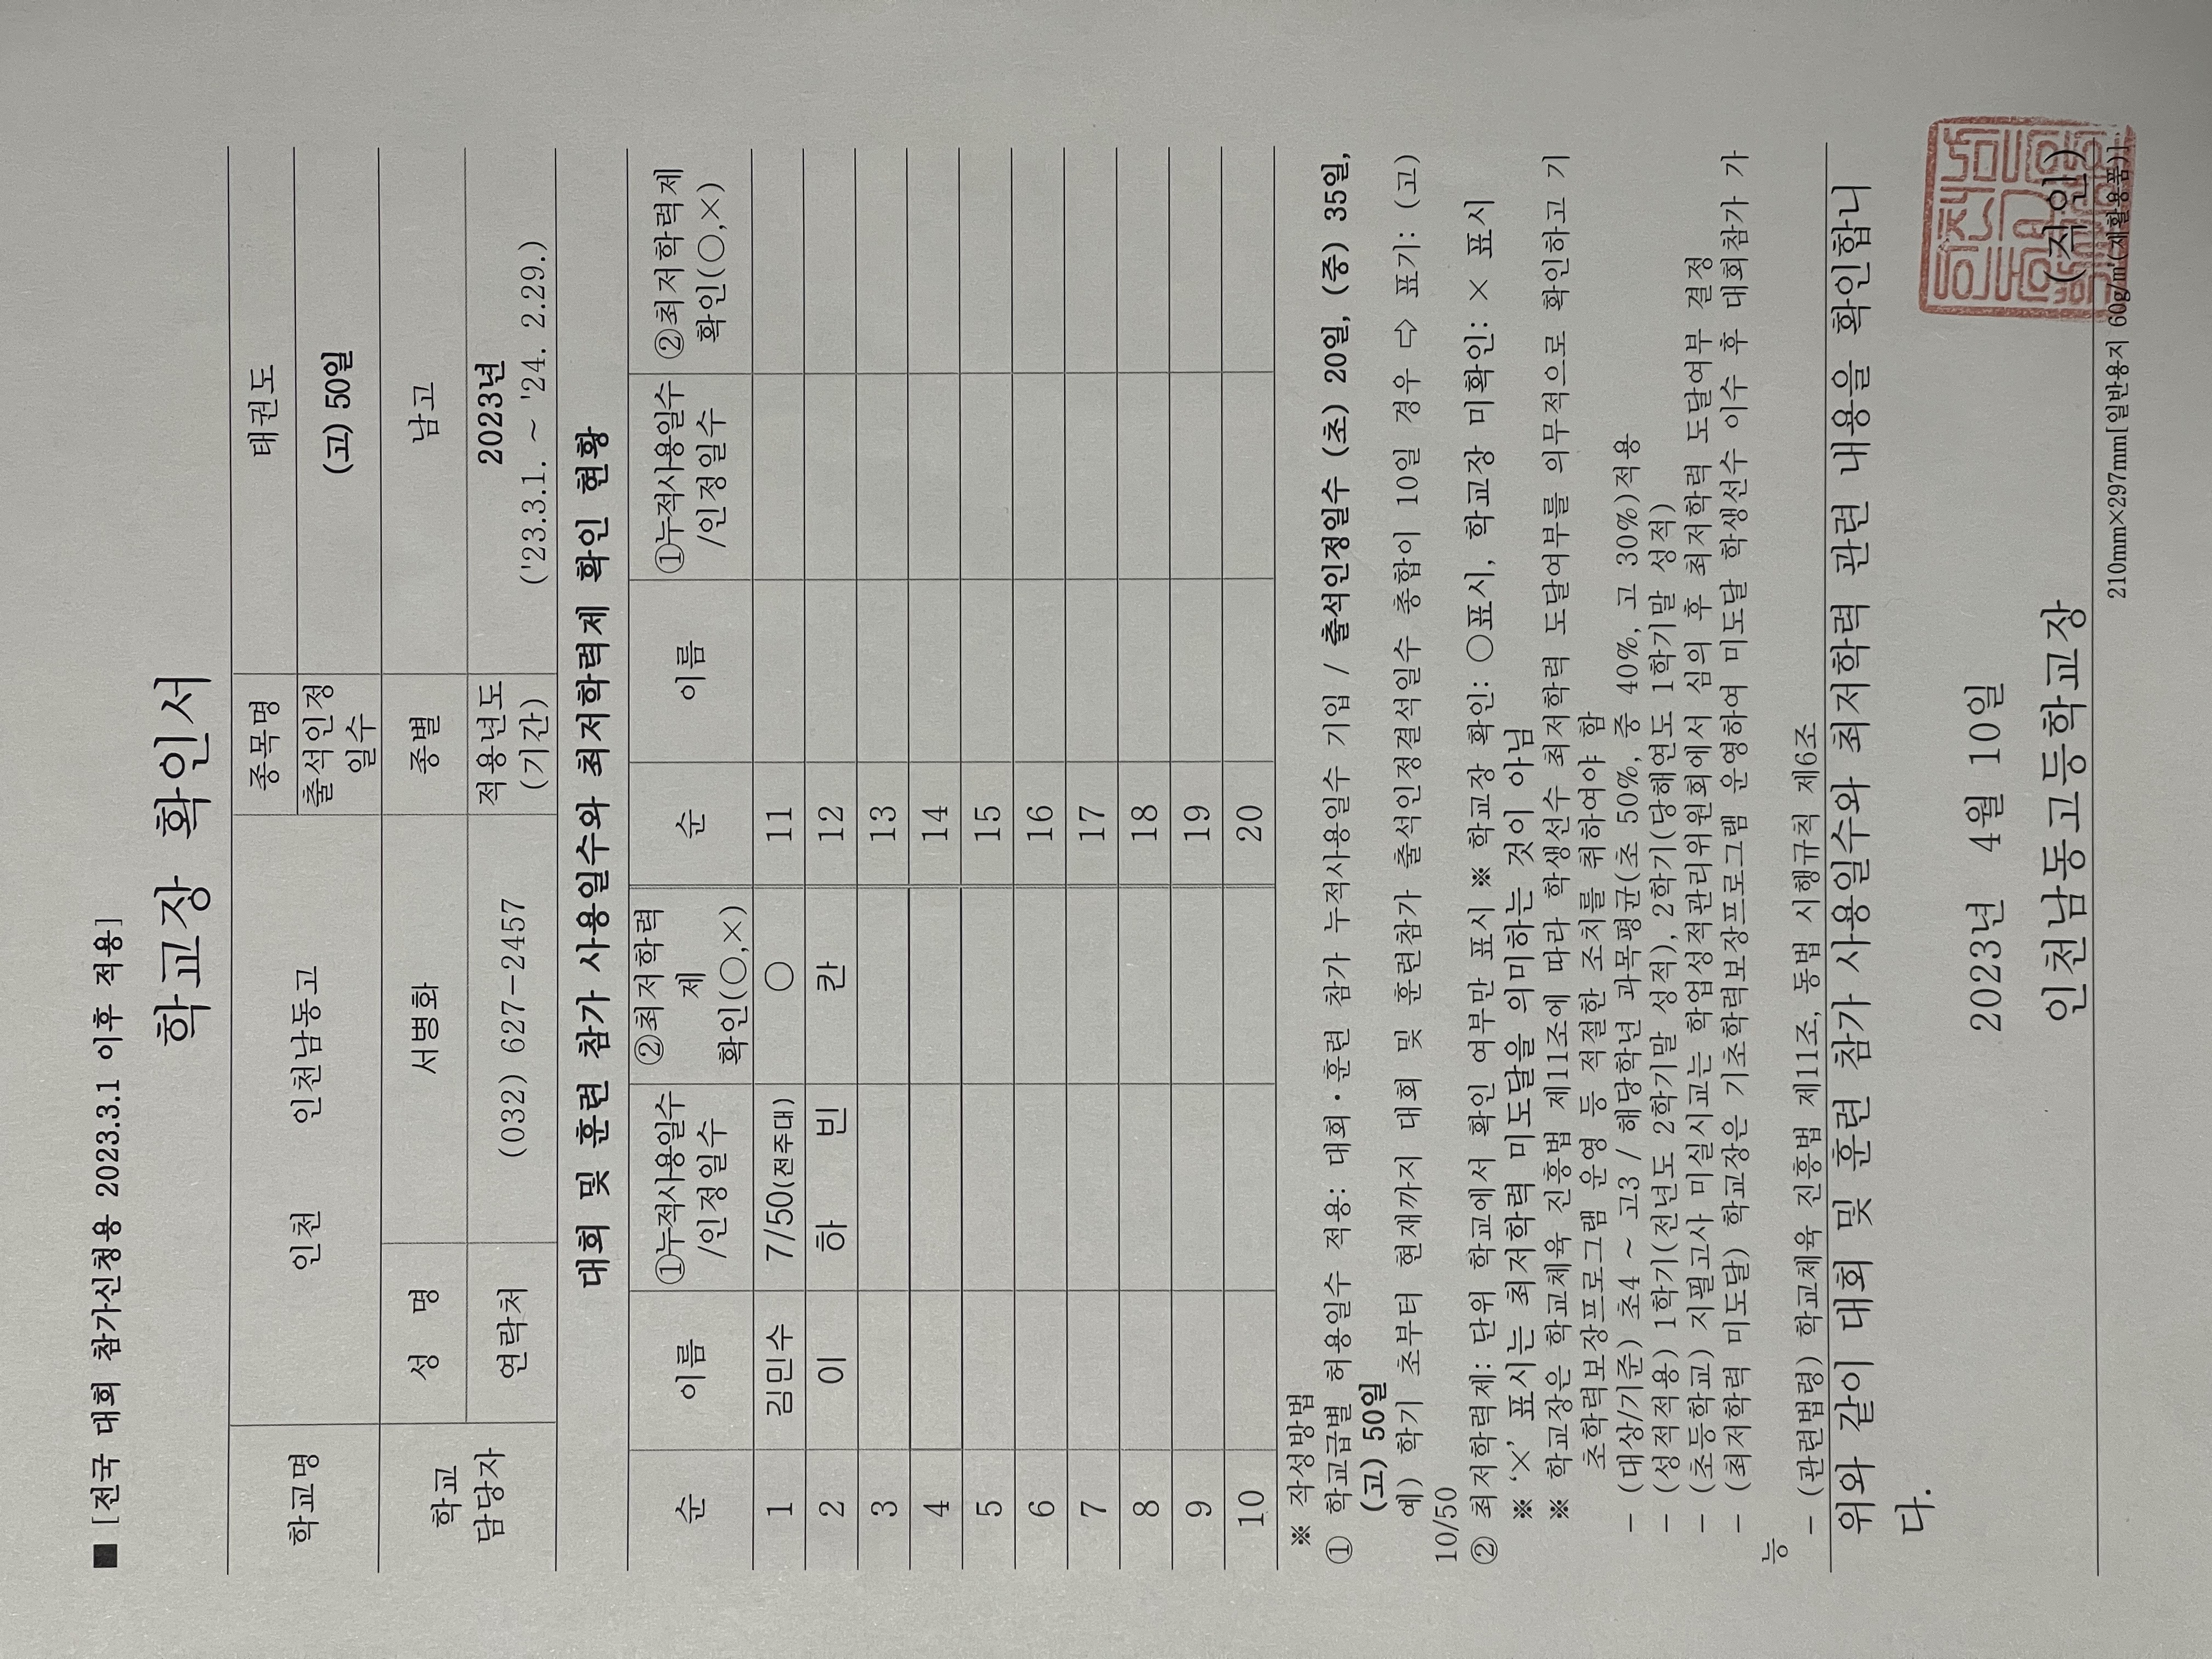 ■ [전국 대회 참가신청용 2023.3.1 이후 적용]
학교장 확인서
학교명 인천 인천남동고 종목명 태권도
출석인정 일수 (고) 50일
학교 담당자 성 명 서병화 종별 남고
연락처 (032) 627-2457 적용년도 (기간) 2023년 ('23.3.1. ~ '24. 2.29.)
대회 및 훈련 참가 사용일수와 최저학력제 확인 현황
순 이름 ①누적사용일수 /인정일수 ②최저학력제 확인(○,×) 순 이름 ①누적사용일수 /인정일수 ②최저학력제 확인(○,×)
1 김민수 7/50(전주대) ○ 11
2 이 하 빈 칸 12
3 13
4 14
5 15
6 16
7 17
8 18
9 19
10 20
※ 작성방법
① 학교급별 허용일수 적용: 대회·훈련 참가 누적사용일수 기입 / 출석인정일수 (초) 20일, (중) 35일,
(고) 50일
예) 학기 초부터 현재까지 대회 및 훈련참가 출석인정결석일수 총합이 10일 경우 ⇨ 표기: (고)
10/50
② 최저학력제: 단위 학교에서 확인 여부만 표시 ※ 학교장 확인: ○표시, 학교장 미확인: × 표시
※ '×' 표시는 최저학력 미도달을 의미하는 것이 아님
※ 학교장은 학교체육 진흥법 제11조에 따라 학생선수 최저학력 도달여부를 의무적으로 확인하고 기
초학력보장프로그램 운영 등 적절한 조치를 취하여야 함
- (대상/기준) 초4 ~ 고3 / 해당학년 과목평균(초 50%, 중 40%, 고 30%)적용
- (성적적용) 1학기(전년도 2학기말 성적), 2학기(당해연도 1학기말 성적)
- (초등학교) 지필고사 미실시교는 학업성적관리위원회에서 심의 후 최저학력 도달여부 결정
- (최저학력 미도달) 학교장은 기초학력보장프로그램 운영하여 미도달 학생선수 이수 후 대회참가 가
능
- (관련법령) 학교체육 진흥법 제11조, 동법 시행규칙 제6조
위와 같이 대회 및 훈련 참가 사용일수와 최저학력 관련 내용을 확인합니
다.
2023년 4월 10일
인천남동고등학교장 (직인)
210mm×297mm[일반용지 60g/㎡(재활용품)]